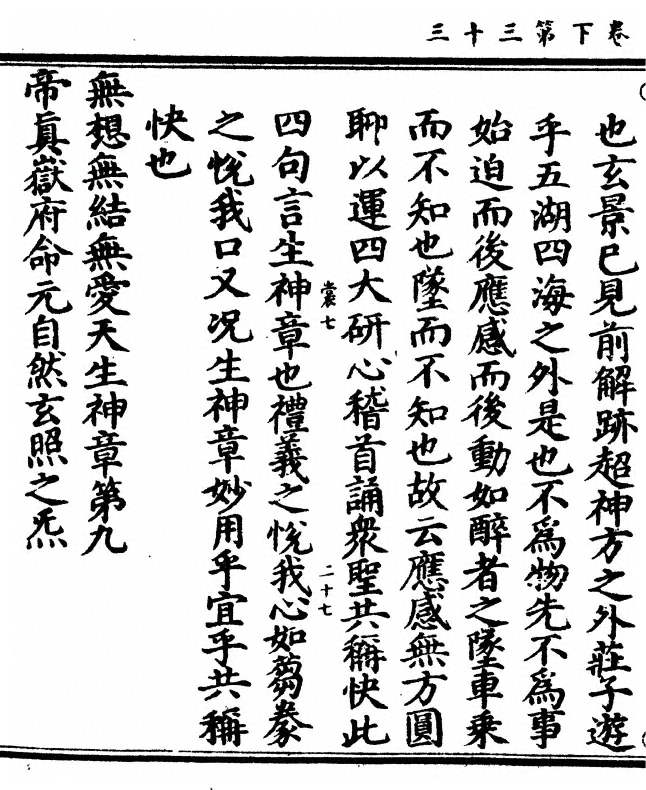 卷下第三十三
也玄景已見前解跡超神方之外莊子遊
乎五湖四海之外是也不為物先不為事
始迫而後應感而後動如醉者之墜車乗
而不知也墜而不知也故云應感無方圓
聊以運四大研心稽首誦衆聖共稱快此
裳七
二十七
四句言生神章也禮義之悅我心如芻豢
之悅我口又况生神章妙用乎宜乎共稱
快也
無想無結無愛天生神章第九
帝真嶽府命元自然玄照之炁